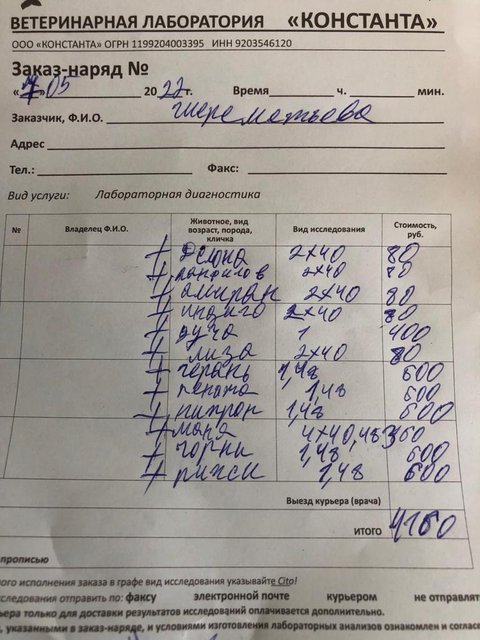 ВЕТЕРИНАРНАЯ ЛАБОРАТОРИЯ «КОНСТАНТА»
ООО «КОНСТАНТА» ОГРН 1199204003395 ИНН 9203546120
Заказ-наряд №
« » 05 2022 г. Время ч. мин.
Заказчик, Ф.И.О. Шереметьева
Адрес
Тел.: Факс:
Вид услуги: Лабораторная диагностика
№ Владелец Ф.И.О. Животное, вид возраст, порода, кличка Вид исследования Стоимость, руб.
+ 2×40 80
+ панфилов 2×40 80
+ амиран 2×40 80
+ индиго 2×40 80
+ 1 400
+ лиза 2×40 80
+ герань 1,48 600
+ 1,48 600
+ 1,48 600
+ маня 4×40,48 360
+ 1,48 600
+ рижси 1,48 600
Выезд курьера (врача)
ИТОГО 4160
прописью
ного исполнения заказа в графе вид исследования указывайте Cito!
сследования отправить по: факсу электронной почте курьером не отправлят
ьера только для доставки результатов исследований оплачивается дополнительно.
, указанными в заказ-наряде, и условиями изготовления лабораторных анализов ознакомлен и соглас